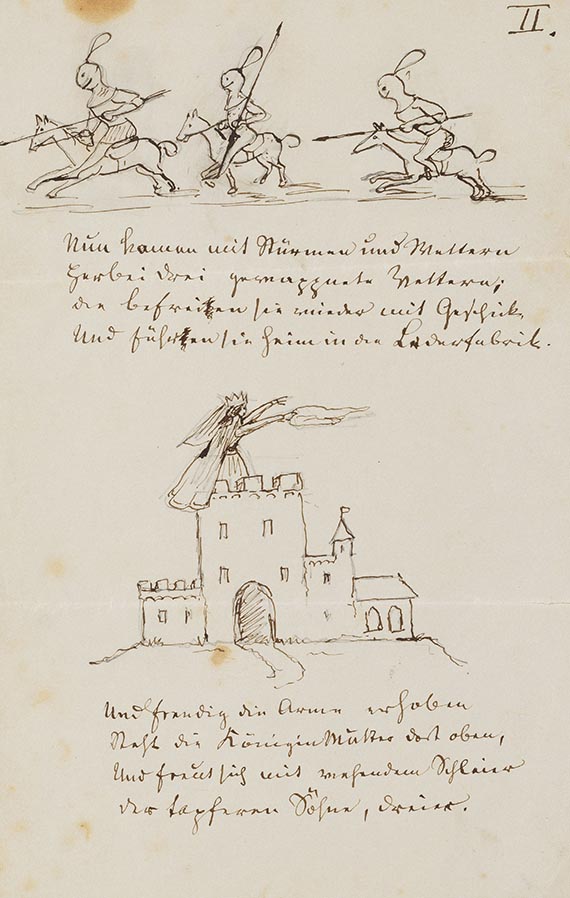 II.
Nun kamen mit Stürmen und Wettern
herbei drei gewappnete Vettern;
die befreiten sie wieder mit Geschick
Und führten sie heim in die Lederfabrik.
Und freudig die Arme erhoben
Steht die Königin Mutter dort oben,
Und freut sich mit wehendem Schleier
der tapferen Söhne, dreier.